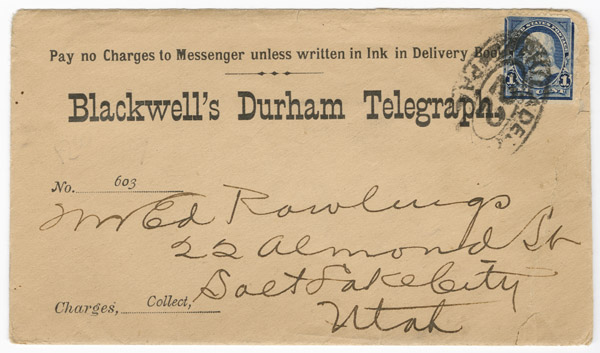 Pay no Charges to Messenger unless written in Ink in Delivery Book.
Blackwell's Durham Telegraph.
No. 603
Mr Ed Rawlings
22 Almond St
Salt Lake City
Charges, Collect,
Utah
1 1